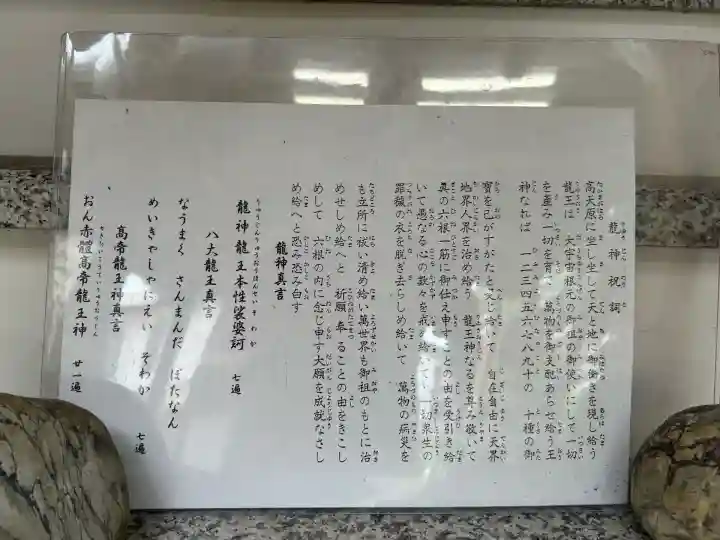 龍神祝詞
高天原に坐し坐して天と地に御働きを現し給う
龍王は 大宇宙根元の御祖の御使いにして一切
を産み一切を育て 萬物を御支配あらせ給う王
神なれば 一二三四五六七八九十の 十種の御
寶を己がすがたと変じ給いて 自在自由に天界
地界人界を治め給う 龍王神なるを尊み敬いて
真の六根一筋に御仕え申すことの由を受引き給
いて愚なる心の数々を戒め給いて 一切衆生の
罪穢の衣を脱ぎ去らしめ給いて 萬物の病災を
も立所に祓い清め給い萬世界も御祖のもとに治
めせしめ給へと 祈願奉ることの由をきこし
めして 六根の内に念じ申す大願を成就なさし
め給へと恐み恐み白す
龍神真言
龍神龍王本性裟婆訶 七遍
八大龍王真言
なうまく さんまんだ ぼたなん
めいきゃしゃにえい そわか 七遍
高帝龍王神真言
おん赤體高帝龍王神 廿一遍